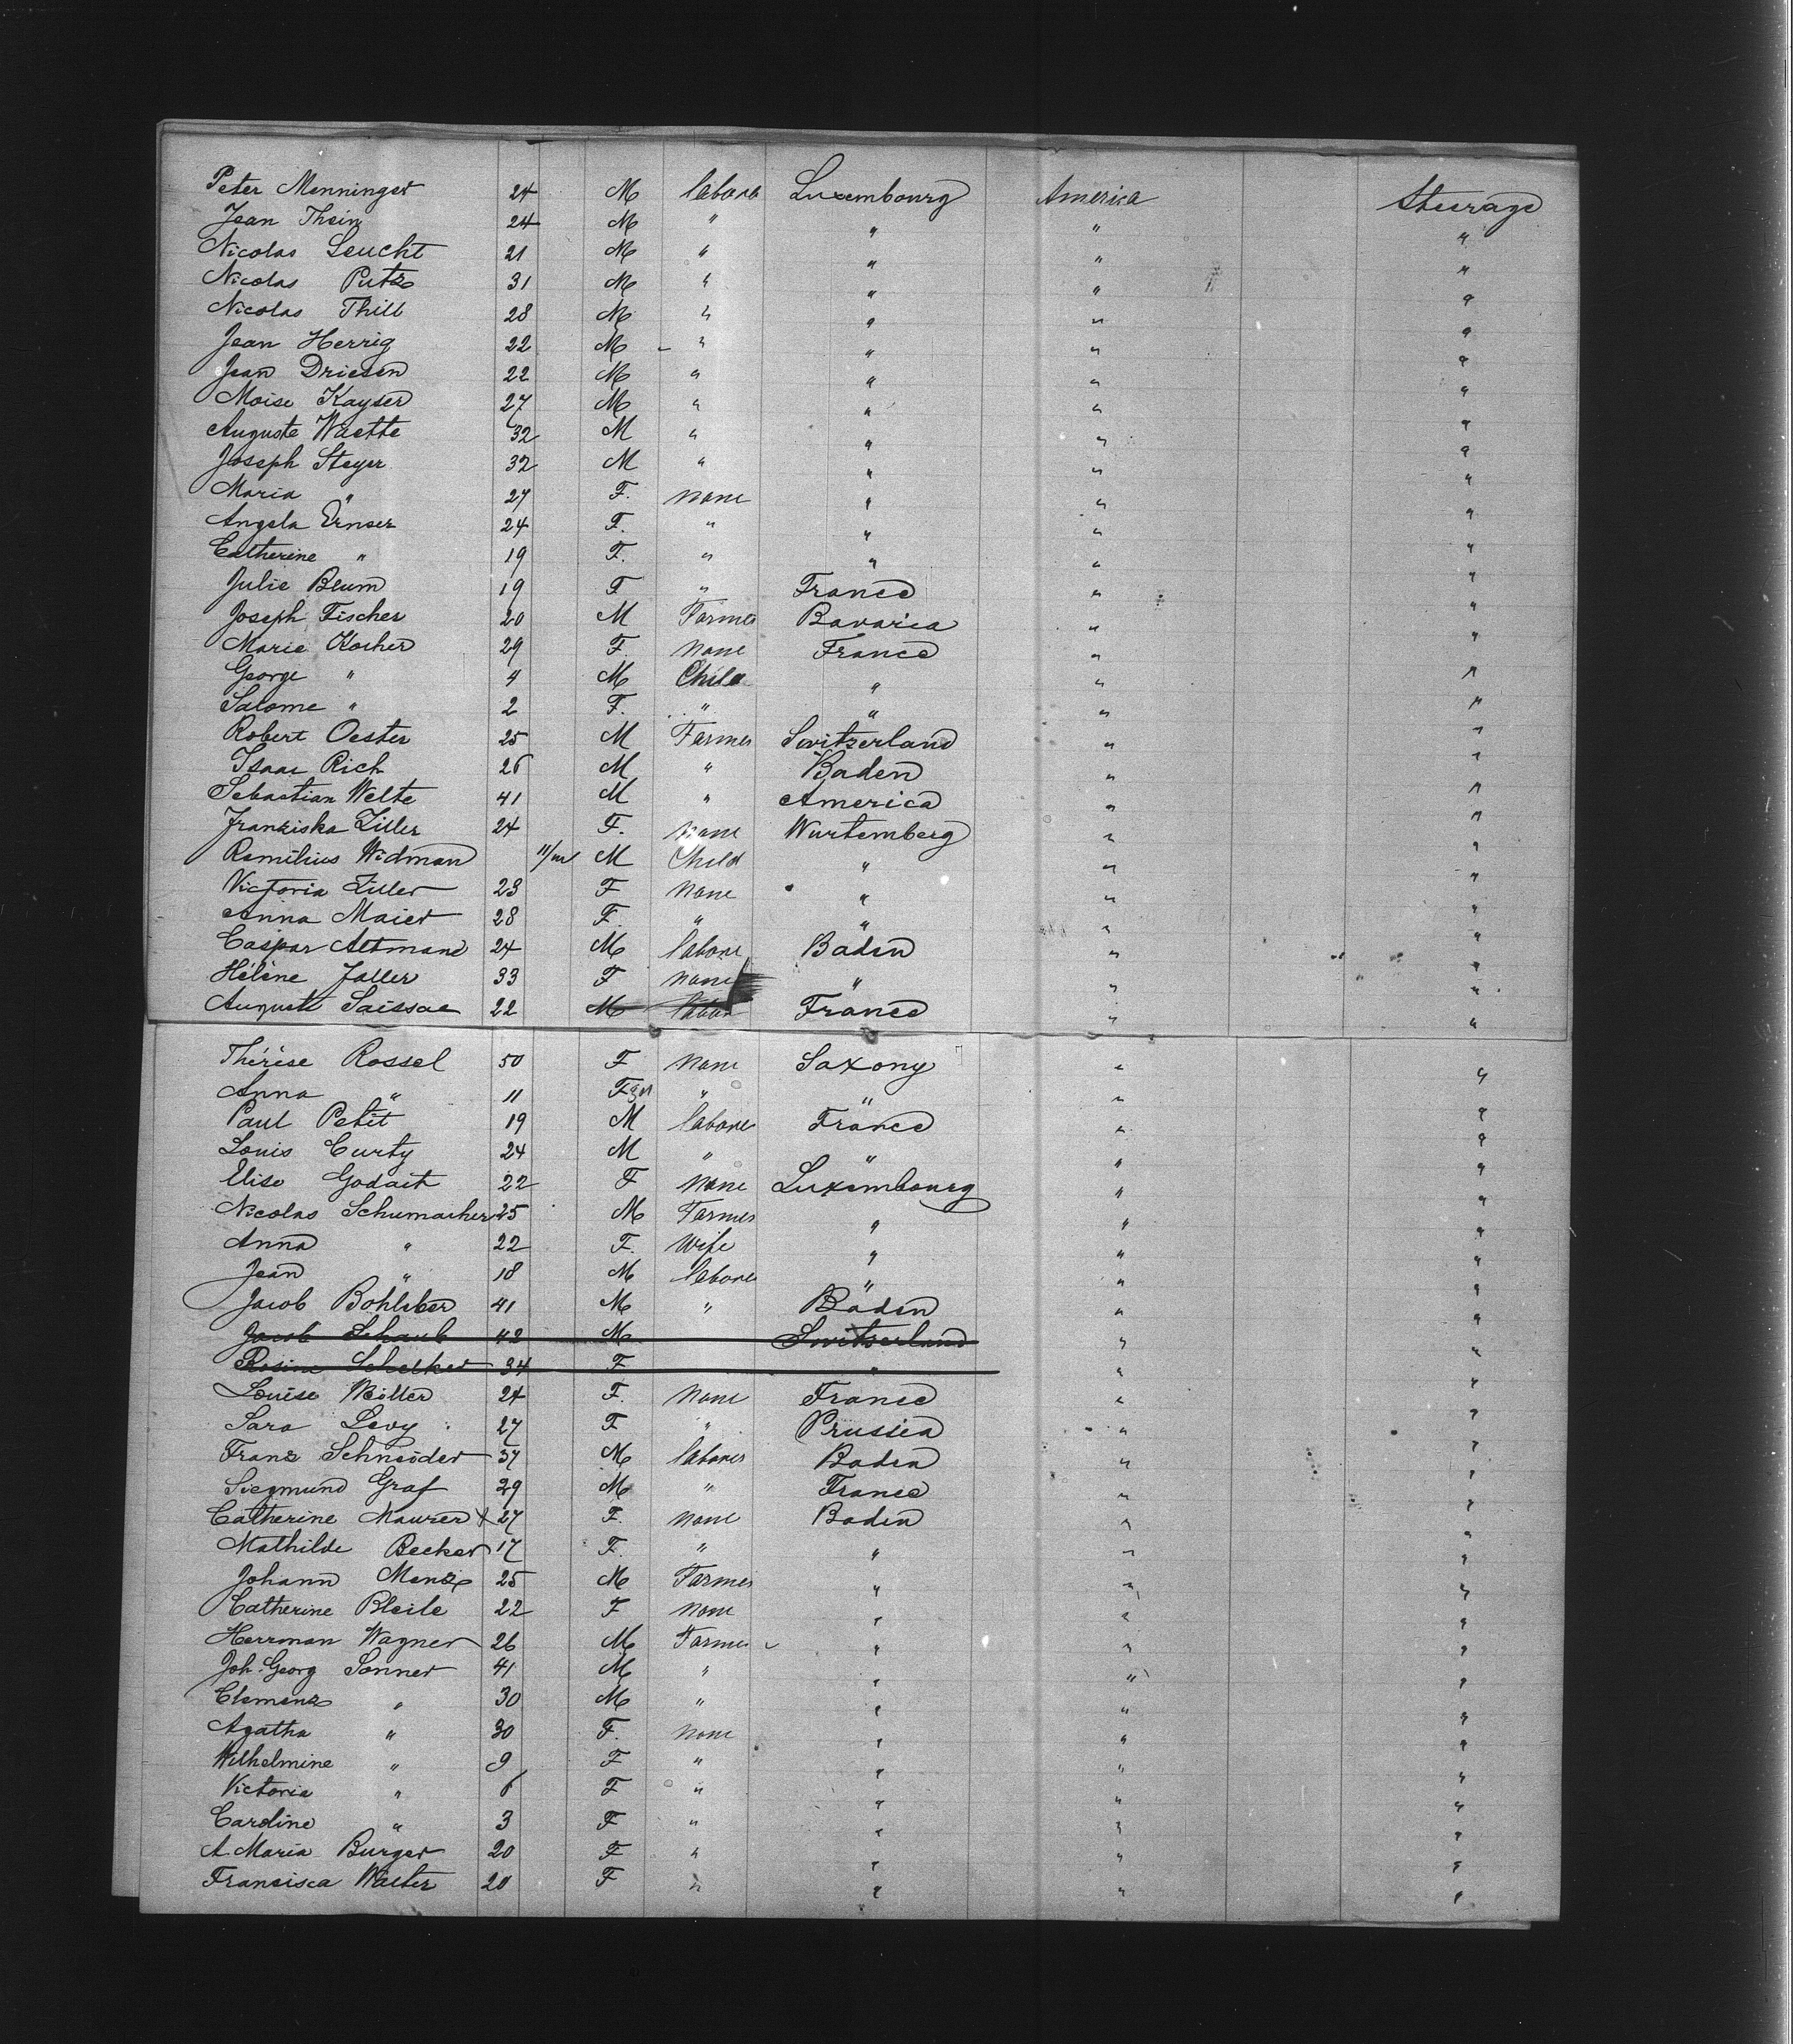 Peter Menninger 24 M labore Luxembourg America Steerage
Jean Thein 24 M " " " "
Nicolas Leucht 21 M " " " "
Nicolas Putz 31 M " " " "
Nicolas Thill 28 M " " " "
Jean Herrig 22 M " " " "
Jean Driesen 22 M " " " "
Moise Kayser 27 M " " " "
Auguste Waette 32 M " " " "
Joseph Steyer 32 M " " " "
Maria " 27 F. none " " "
Angela Ernser 24 F. " " " "
Catherine " 19 F. " " " "
Julie Blum 19 F " France " "
Joseph Fischer 20 M Farmer Bavaria " "
Marie Kocher 29 F. none France " "
George " 4 M Child " " "
Salome " 2 F. " " " "
Robert Oester 25 M Farmer Switzerland " "
Isaac Rich 26 M " Baden " "
Sebastian Welte 41 M " America " "
Franziska Ziller 24 F. none Wurtemberg " "
Romilius Widman 11/m M Child " " "
Victoria Ziller 23 F none " " "
Anna Maier 28 F. " " " "
Caspar Altmann 24 M labore Baden " "
Hélène Faller 33 F none " " "
Auguste Saissac 22 M labor France " "
Thérèse Rossel 50 F none Saxony " "
Anna " 11 F " " " "
Paul Petit 19 M labore France " "
Louis Curty 24 M " " " "
Elise Godait 22 F none Luxembourg " "
Nicolas Schumacher 25 M Farmer " " "
Anna " 22 F. Wife " " "
Jean " 18 M labore " " "
Jacob Bohleber 41 M " Baden " "
Jacob Schaub 42 M Switzerland " "
Rosine Schelker 34 F " " "
Louise Müller 24 F. none France " "
Sara Levy 27 F " Prussia " "
Franz Schneider 37 M laborer Baden " "
Siegmund Graf 29 M " France " "
Catherine Maurer X 27 F. none Baden " "
Mathilde Becker 17 F. " " " "
Johann Menz 25 M Farmer " " "
Catherine Bleile 22 F none " " "
Herrman Wagner 26 M Farmer " " "
Joh. Georg Sonner 41 M " " " "
Clemenz " 30 M " " " "
Agatha " 30 F. none " " "
Wilhelmine " 9 F " " " "
Victoria " 6 F " " " "
Caroline " 3 F " " " "
A. Maria Burger 20 F " " " "
Francisca Walter 20 F " " " "